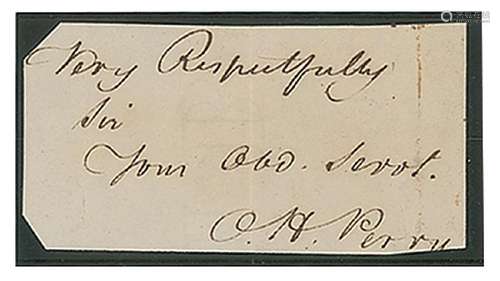 Very Respectfully
Sir
Your Obd. Servt.
O. H. Perry